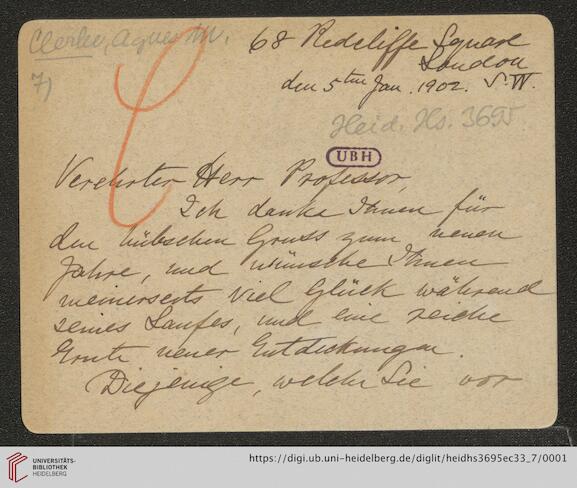 Clerke, Agnes M.
7)
68 Redcliffe Square
London
S.W.
den 5ten Jan. 1902.
Heid. Hs. 3695
UBH
Verehrter Herr Professor,
Ich danke Ihnen für
den hübschen Gruss zum neuen
Jahre, und wünsche Ihnen
meinerseits viel Glück während
seines Laufes, und eine reiche
Ernte neuer Entdeckungen.
Diejenige, welche Sie vor
UNIVERSITÄTS-
BIBLIOTHEK
HEIDELBERG
https://digi.ub.uni-heidelberg.de/diglit/heidhs3695ec33_7/0001